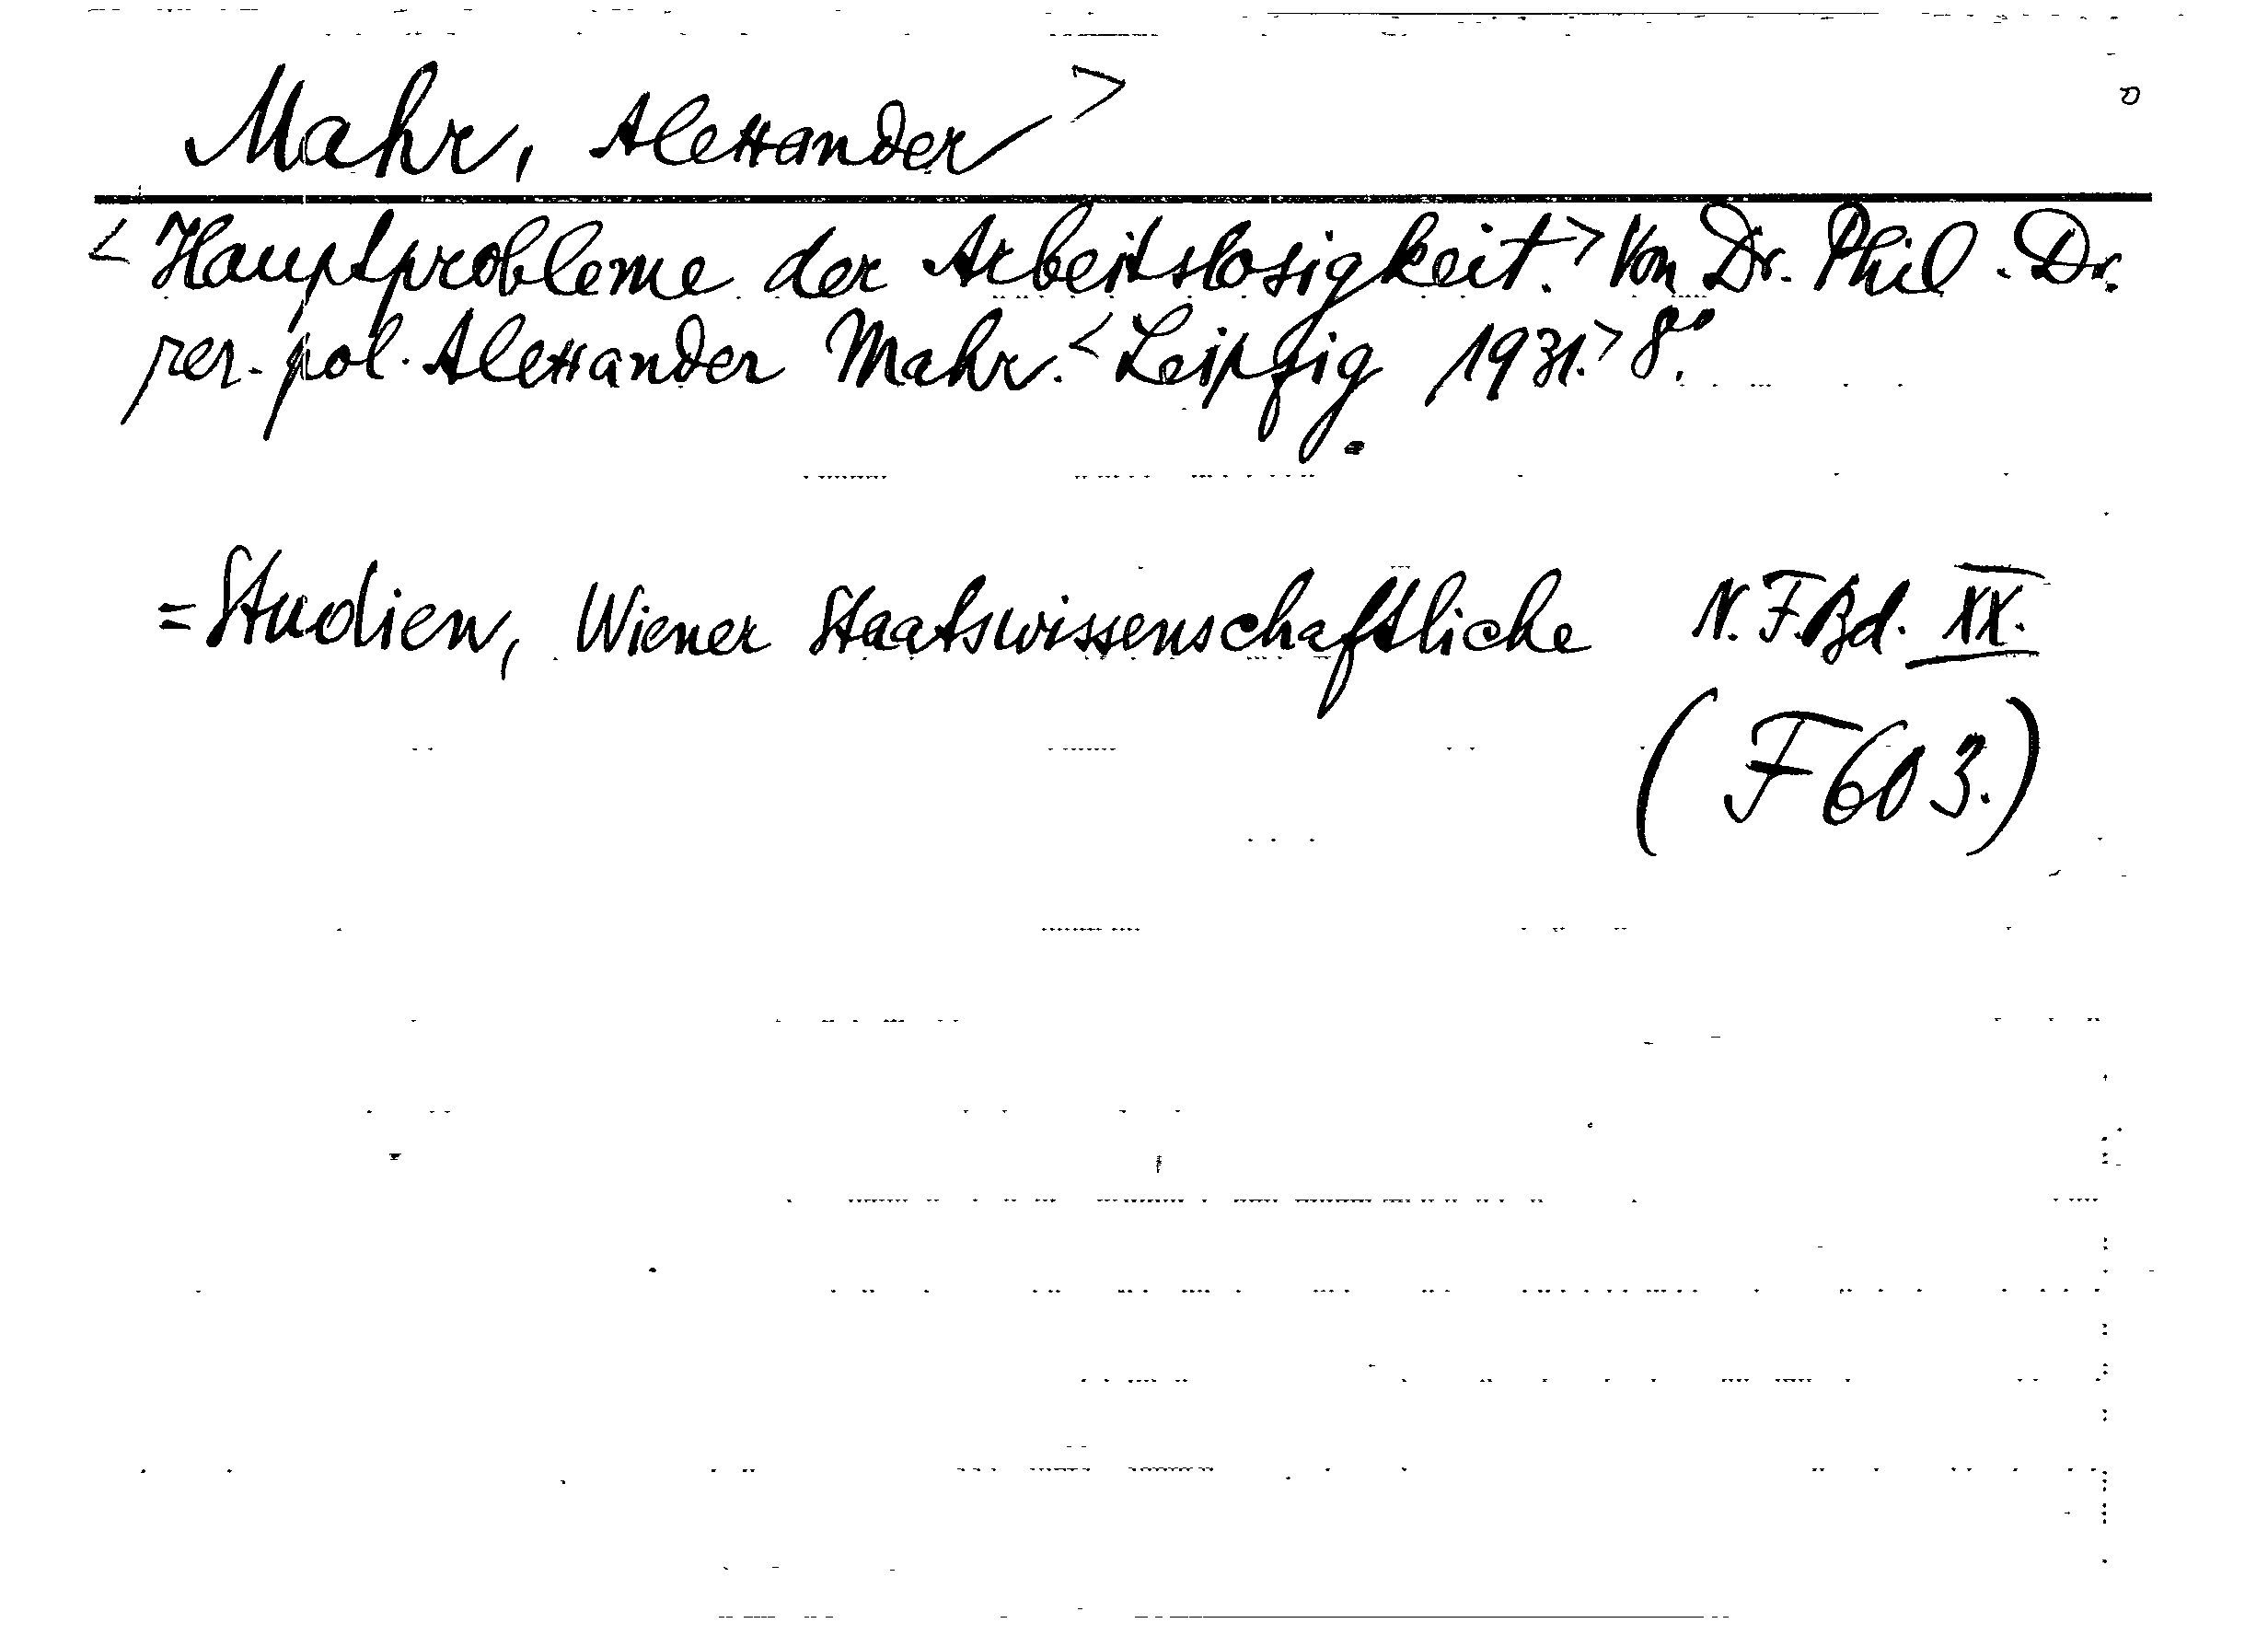 Mahr, Alexander>
<Hauptprobleme der Arbeitslosigkeit.> Von Dr. Phil. Dr.
rer. pol. Alexander Mahr. <Leipzig 1931.> 8°.
=Studien, Wiener Staatswissenschaftliche N.F.Bd. XX.
(F603.)